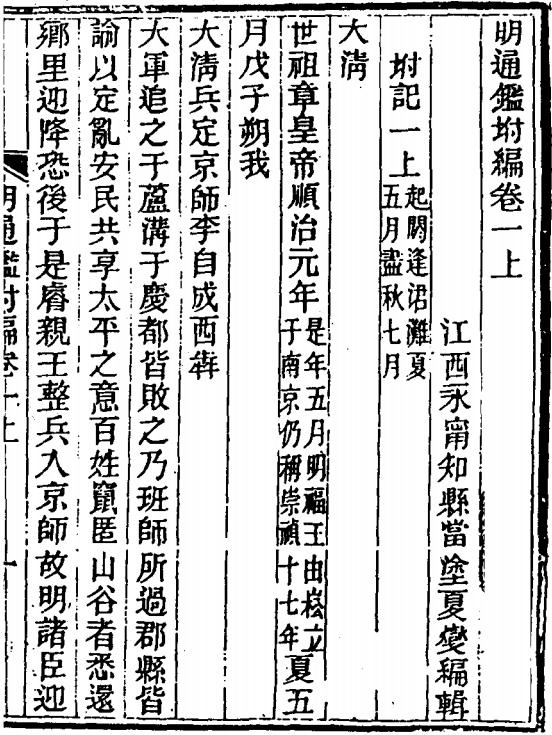 明通鑑坿編卷一上
江西永甯知縣當塗夏燮編輯
坿記一上起閼逢涒灘夏
五月盡秋七月
大淸
世祖章皇帝順治元年是年五月明福王由崧立
于南京仍稱崇禎十七年夏五
月戊子朔我
大淸兵定京師李自成西犇
大軍追之于蘆溝于慶都皆敗之乃班師所過郡縣皆
諭以定亂安民共享太平之意百姓竄匿山谷者悉還
鄉里迎降恐後于是睿親王整兵入京師故明諸臣迎
明通鑑坿編卷一上 一